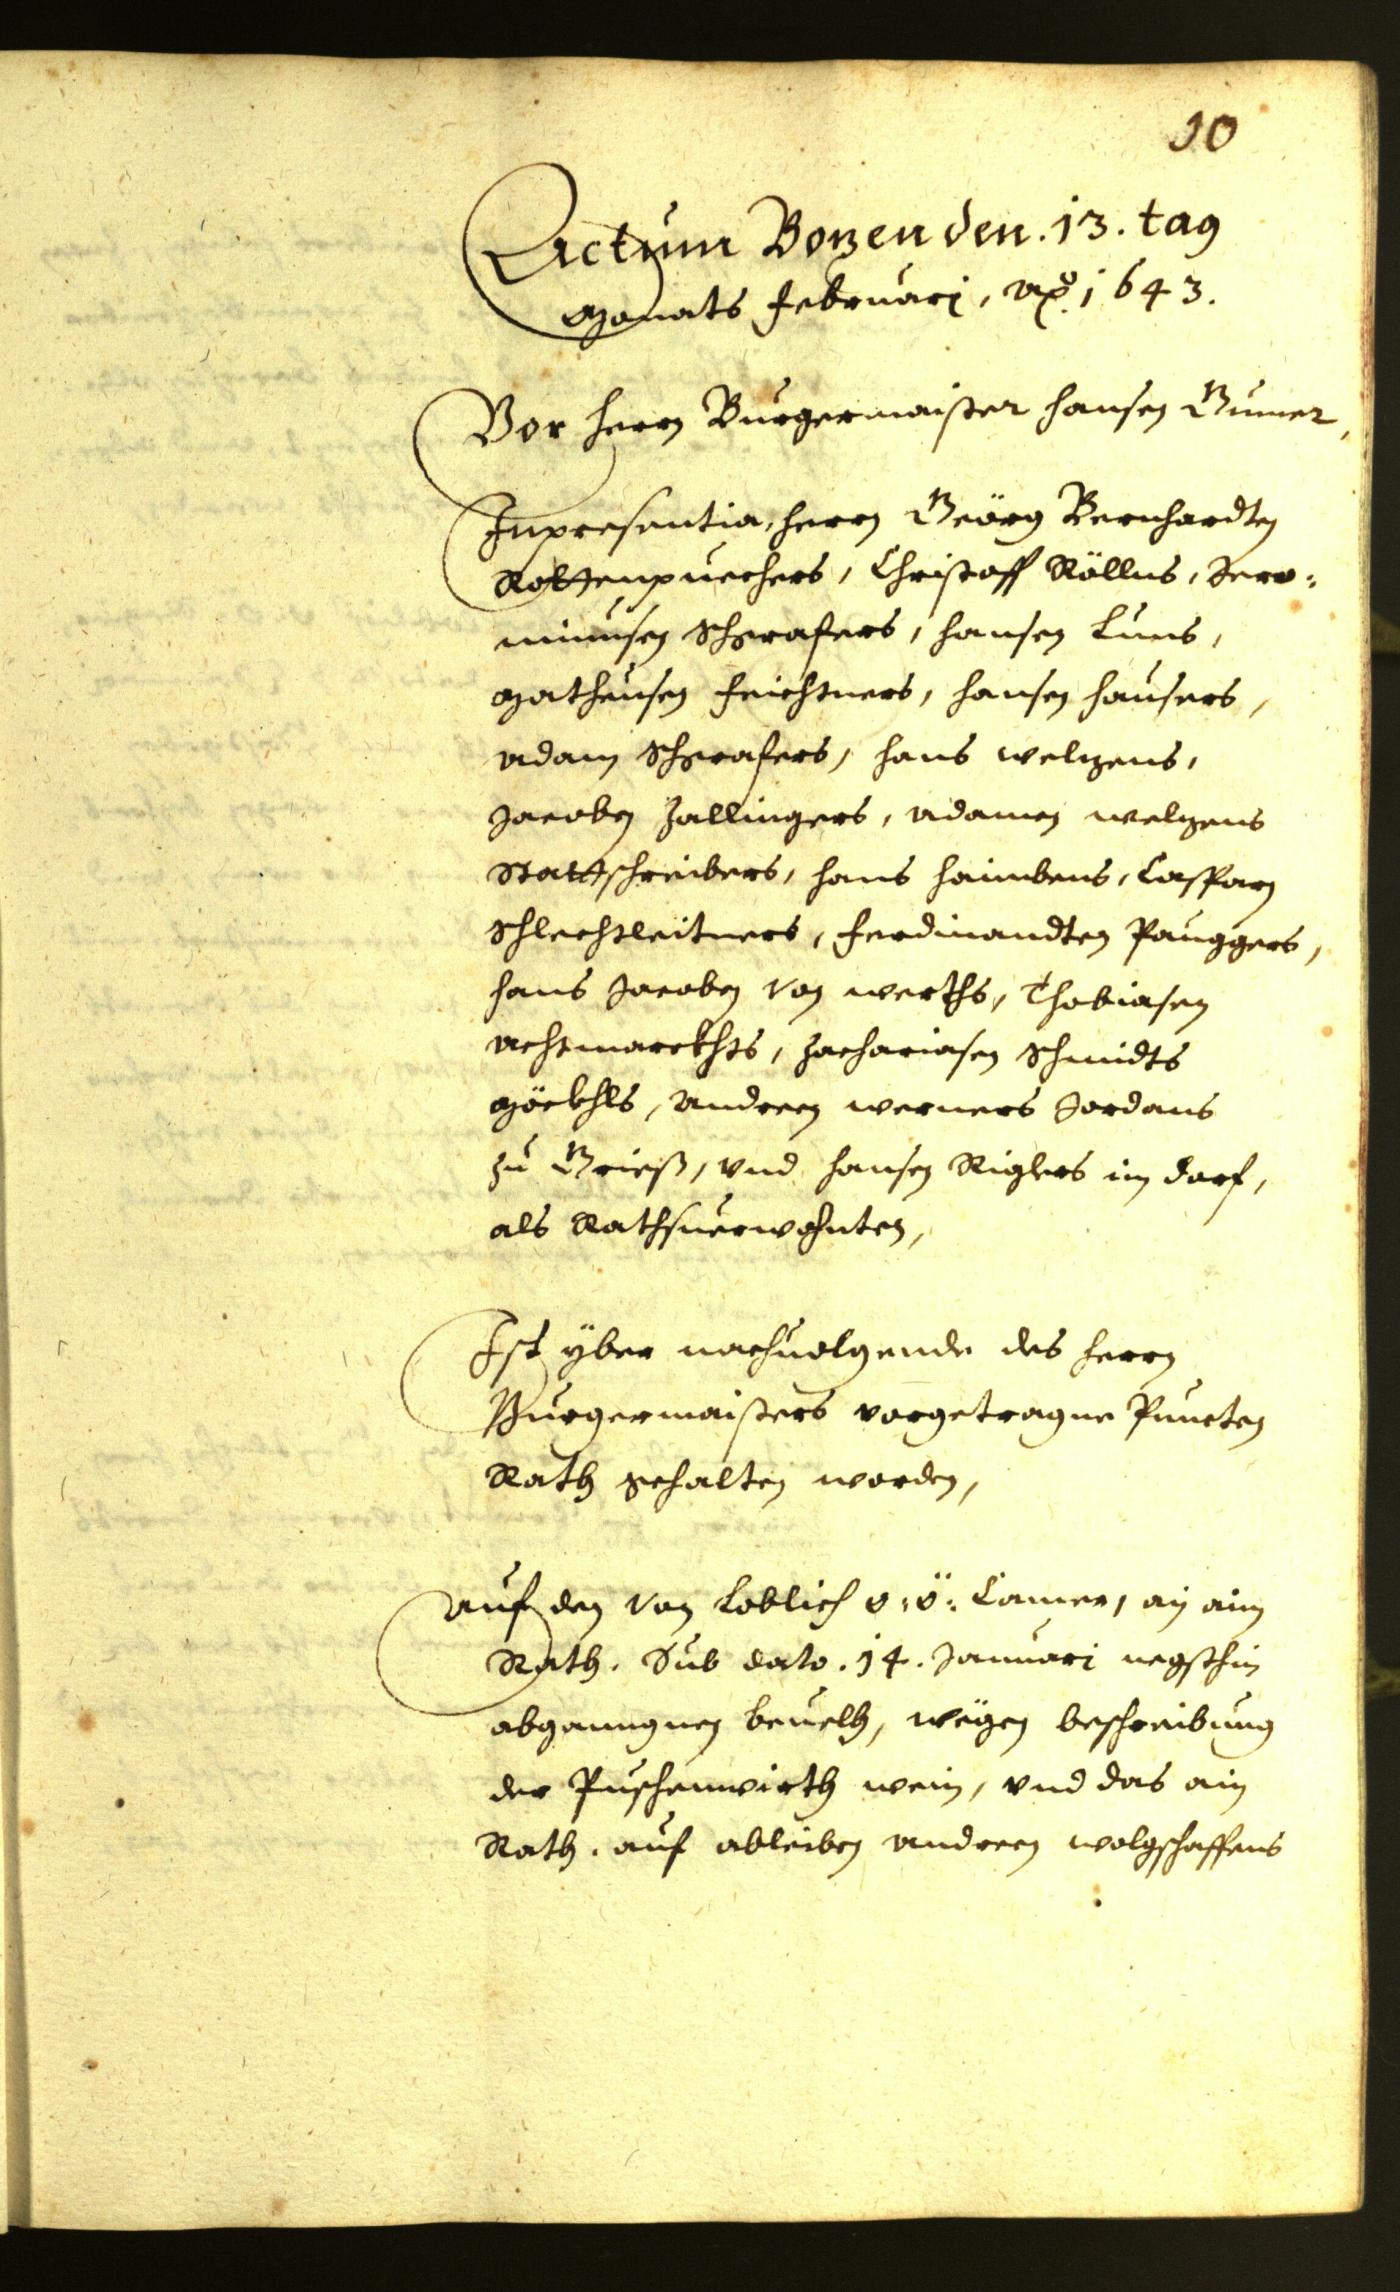 10
Actum Bozen den. 13. tag
Monats Februarj, Aõ. 1643.
Vor herrn Burgermaister Hansen Gumer,
In presentia, herrn Geörg Bernhardten
Rottenpuechers, Christoff Röllns, Jero:
nimusen Schgrafers, Hansen Luns,
Matheusen Feichtners, Hansen Hausers,
Adam Schgrafers, Hans Welzens,
Jacoben Zallingers, Adamen Welzens
Stattschreibers, Hans Haimbens, Casparn
Schlechtleitners, Ferdinandten Pauggers,
Hans Jacoben von Werths, Thobiasen
Achtmarckhts, Zachariasen Schmidts
Möckhls, Andreen Werners Jordans
zu Grieß, vnd Hansen Riglers im Dorf,
als Rathsuerwohnten,
Ist yber nachuolgende des herrn
Burgermaisters vorgetragne Puncten
Rath gehalten worden,
Auf den von Loblich o: ö: Camer, an ain
Rath. Sub dato. 14. Januari negsthin
abgangnen beuelh, wegen beschreibung
der Puschenwirth wein, vnd das ain
Rath. auf ableiben Andreen Wolgschaffens